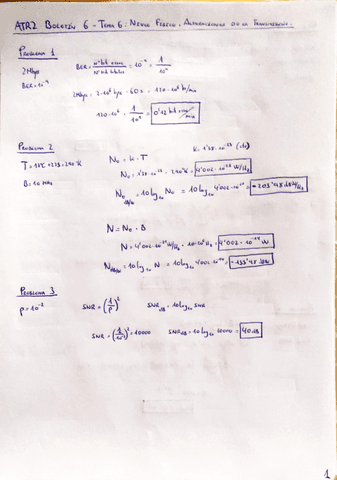 ATR2 BOLETÍN 6 - TEMA 6: NIVEL FÍSICO. ALTERACIONES EN LA TRANSMISIÓN.
PROBLEMA 1
2Mbps BER = nº bit erron. / nº bit totales = 10⁻⁹ = 1 / 10⁹
BER = 10⁻⁹
2Mbps = 2·10⁶ bps · 60 s = 120·10⁶ b/min
120·10⁶ · 1 / 10⁹ = 0'12 bit
PROBLEMA 2
T = 17ºC + 273 = 290ºK N₀ = K · T K = 1'38·10⁻²³
B = 10 MHz N₀ = 1'38·10⁻²³ · 290ºK = 4'002·10⁻²¹ W/Hz
N₀ = 10 log₁₀ N₀ = 10 log₁₀ 4'002·10⁻²¹ = -203'98 dBW/Hz
N = N₀ · B
N = 4'002·10⁻²¹ W/Hz · 10·10⁶ Hz = 4'002·10⁻¹⁴ W
N = 10 log₁₀ N = 10 log₁₀ 4'002·10⁻¹⁴ = -133'98 dBW
PROBLEMA 3
ρ = 10⁻² SNR = (1/ρ)² SNR dB = 10 log₁₀ SNR
SNR = (1/10⁻²)² = 10000 SNR dB = 10 log₁₀ 10000 = 40 dB
1